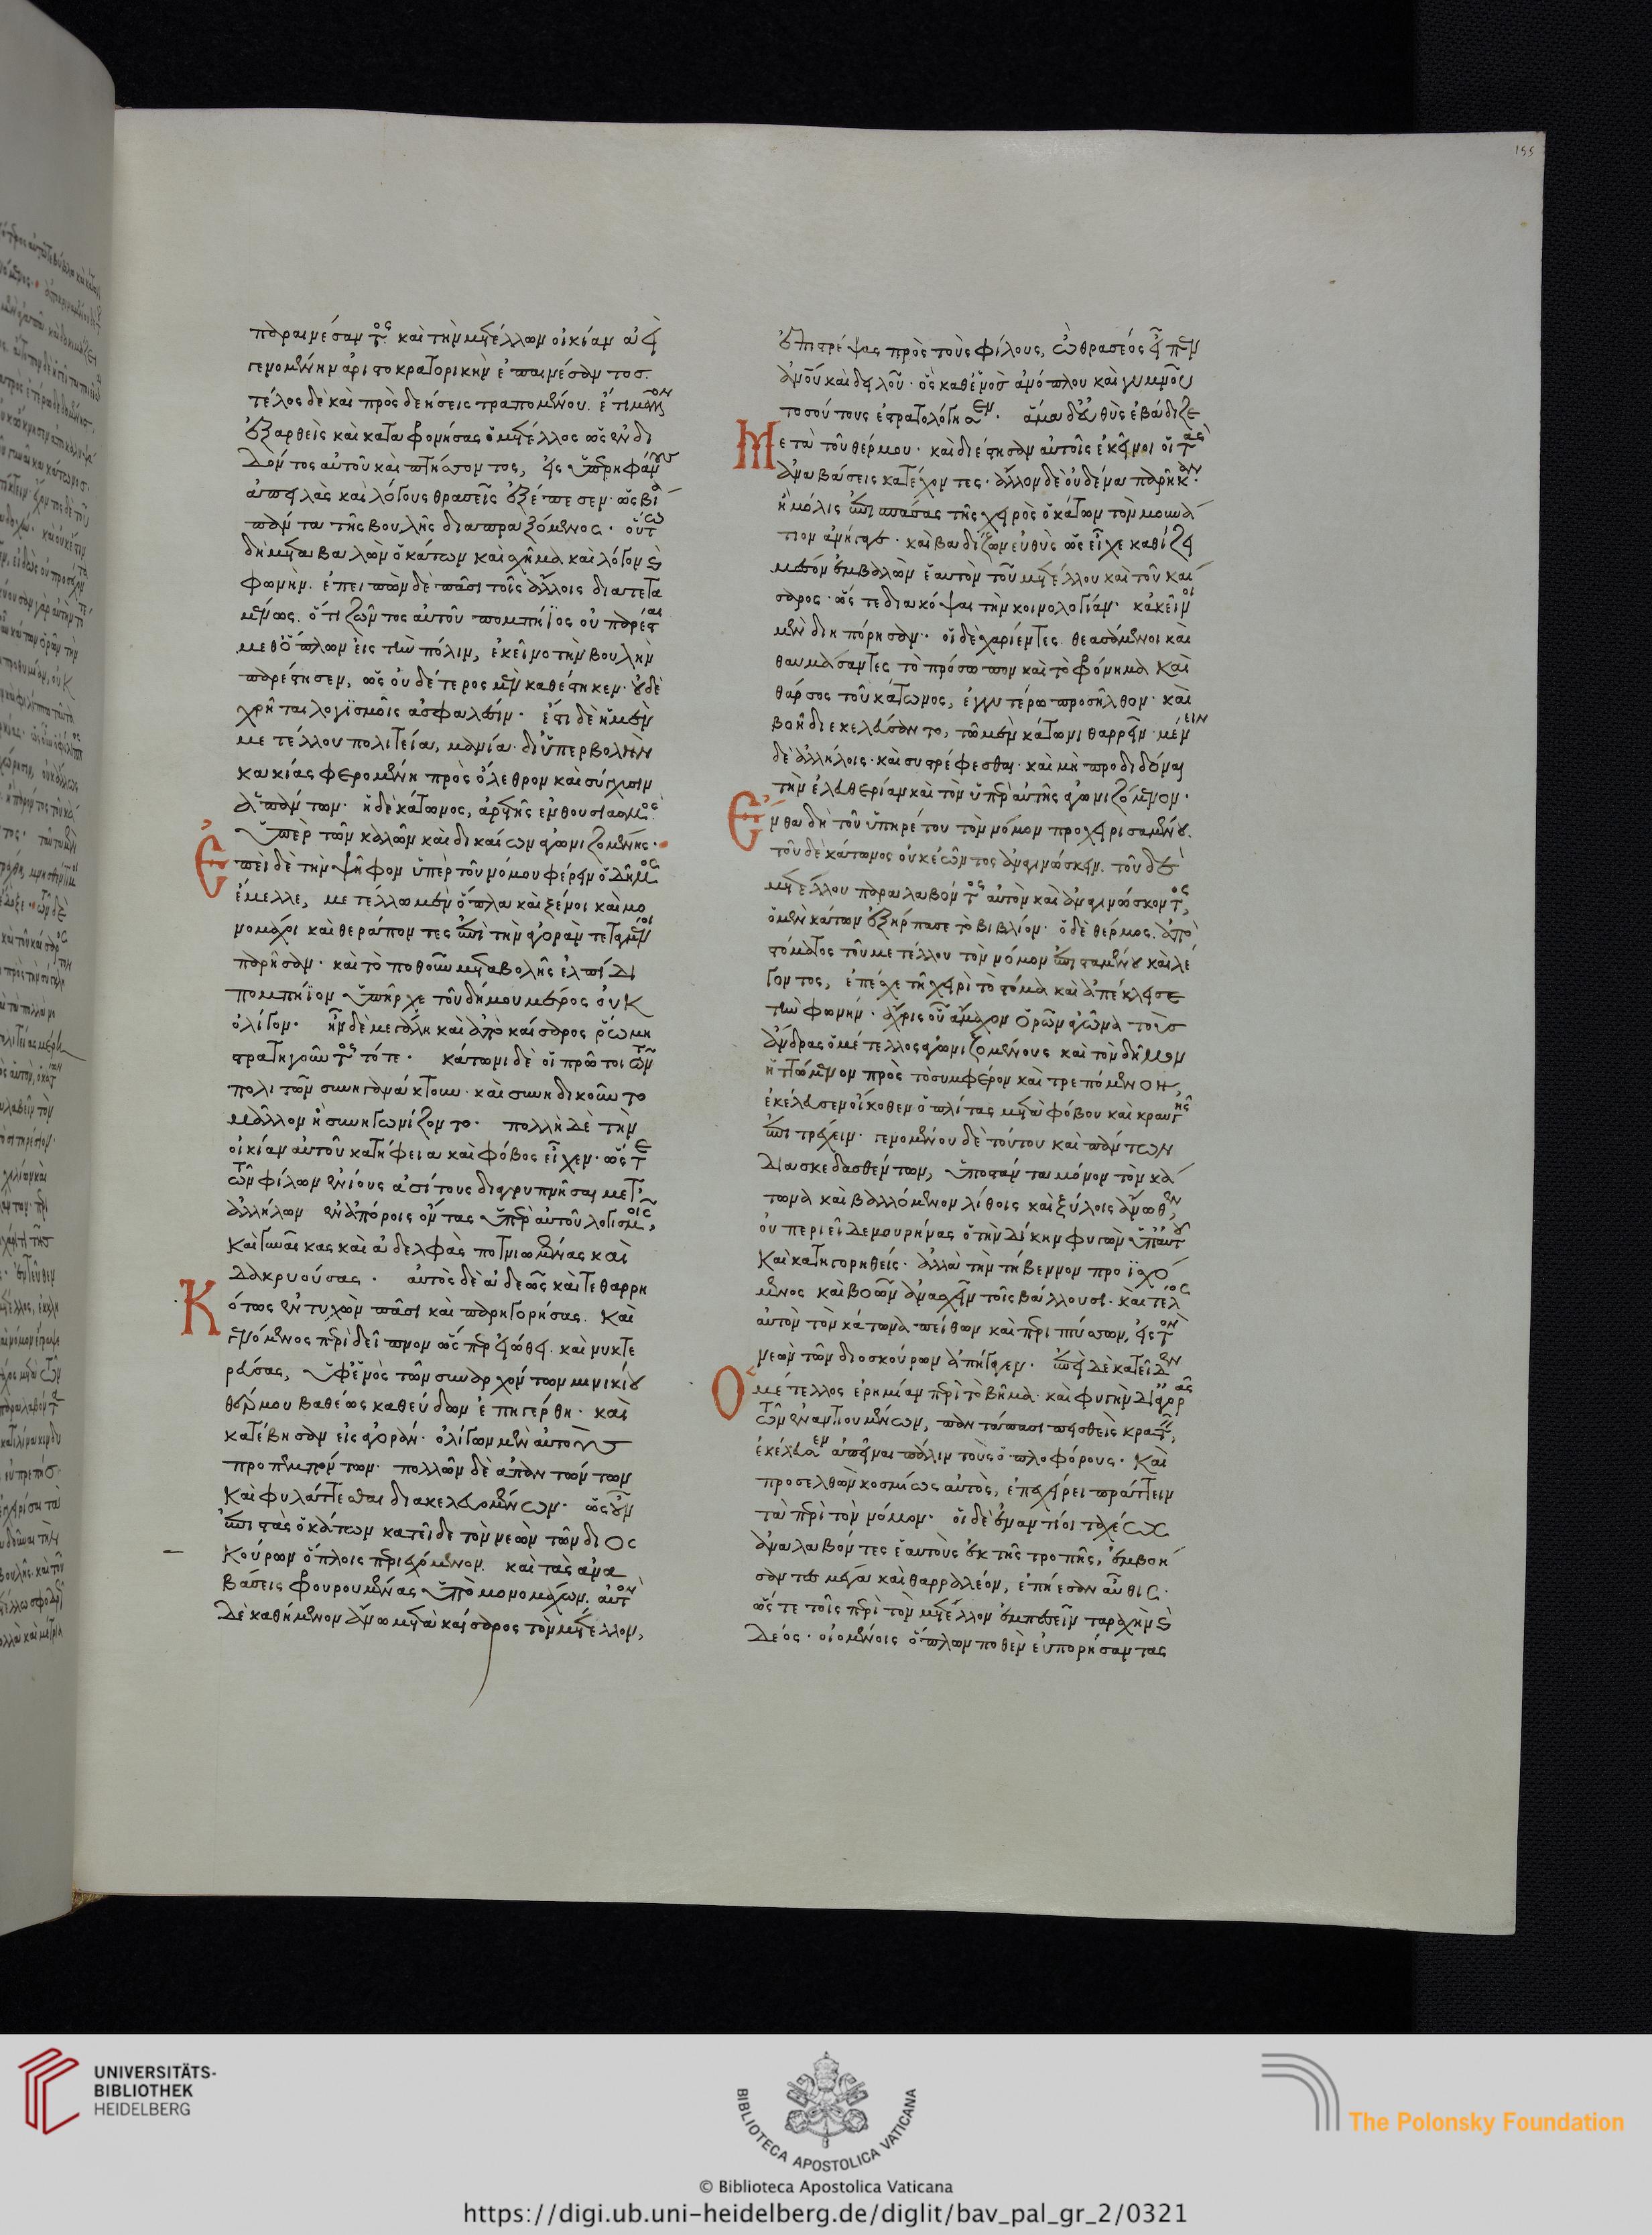 παραινέσαντος καὶ τὴν μετέλλων οἰκίαν ἀεὶ
γενομένην ἀριστοκρατορικὴν ἐπαινέσαντος.
τέλος δὲ καὶ πρὸς δεήσεις τραπομένου. ἔτι μᾶλλον
ἐξαρθεὶς καὶ καταφρονήσας ὁ μετέλλος ὡς ἐνδι
δόντος αὐτοῦ καὶ πτήσσοντος, εἰς ὑπερηφάνους
ἀπειλὰς καὶ λόγους θρασεῖς ἐξέπεσεν. ὡς βία
πάντα τῆς βουλῆς διαπραξόμενος. οὕτω
δὴ μεταβαλὼν ὁ κάτων καὶ σχῆμα καὶ λόγον καὶ
φωνὴν. ἐπειπὼν δὲ πᾶσι τοῖς ἄλλοις διατετα
μένως. ὅτι ζῶντος αὐτοῦ πομπήϊος οὐ παρέσται
μεθ' ὅπλων εἰς τὴν πόλιν, ἐκεῖνο τὴν βουλὴν
παρέστησεν, ὡς οὐδέτερος μὲν καθέστηκεν. οὐδὲ
χρῆται λογϊσμοῖς ἀσφαλέσιν. ἔστι δὲ ἡ μὲν
μετέλλου πολιτεία, μανία. δι' ὑπερβολὴν
κακίας φερομένη πρὸς ὄλεθρον καὶ σύγχυσιν
ἁπάντων. ἡ δὲ κάτωνος, ἀρετῆς ἐνθουσιασμὸς
ὑπὲρ τῶν καλῶν καὶ δικαίων ἀγωνιζομένης.
Ἐπεὶ δὲ τὴν ψῆφον ὑπὲρ τοῦ νόμου φέρειν ὁ δῆμος
ἔμελλε, μετέλλω μὲν ὅπλα καὶ ξένοι καὶ μο
νομάχοι καὶ θεράποντες ἐπὶ τὴν ἀγορὰν τεταγμένοι
παρῆσαν. καὶ τὸ ποθοῦν μεταβολῆς ἐλπίδι
πομπήϊον ὑπῆρχε τοῦ δήμου μέρος οὐκ
ὀλίγον. ἦν δὲ μεγάλη καὶ ἀπὸ καίσαρος ῥώμη
στρατηγοῦντος τότε. κάτωνι δὲ οἱ πρῶτοι τῶν
πολιτῶν συνηγανάκτουν. καὶ συνηδικοῦντο
μᾶλλον ἢ συνηγωνίζοντο. πολλὴ δὲ τὴν
οἰκίαν αὐτοῦ κατήφεια καὶ φόβος εἶχεν. ὥστε
τῶν φίλων ἐνίους ἀσίτους διαγρυπνῆσαι μετ'
ἀλλήλων ἐν ἀπόροις ὄντας ὑπὲρ αὐτοῦ λογισμοῖς,
καὶ γυναῖκας καὶ ἀδελφὰς ποτνιωμένας καὶ
δακρυούσας. αὐτὸς δὲ ἀδεῶς καὶ τεθαρρη
Κότως ἐντυχὼν πᾶσι καὶ παρηγορήσας. καὶ
γενόμενος περὶ δεῖπνον ὥσπερ εἰώθει. καὶ νυκτε
ρεύσας, ὑφ' ἑνὸς τῶν συναρχόντων μινικίου
θέρμου βαθέως καθεύδων ἐπηγέρθη. καὶ
κατέβησαν εἰς ἀγορὰν. ὀλίγων μὲν αὐτοὺς
προπεμπόντων. πολλῶν δὲ ἀπαντώντων
καὶ φυλάττεσθαι διακελευομένων. ὡς οὖν
ἐπιστὰς ὁ κάτων κατεῖδε τὸν νεὼν τῶν διοσ
κούρων ὅπλοις περιεχόμενον. καὶ τὰς ἀνα
βάσεις φρουρουμένας ὑπὸ μονομάχων. αὐτὸν
δὲ καθήμενον ἄνω μετὰ καίσαρος τὸν μετέλλον,
155
ἐπιστρέψας πρὸς τοὺς φίλους, ὢ θρασέος εἶπεν
ἀνοῦ καὶ δειλοῦ. ὃς καθ' ἑνὸς ἀνόπλου καὶ γυμνοῦ
τοσούτους ἐστρατολόγησεν. ἅμα δ' εὐθὺς ἐβάδιζε
Μετὰ τοῦ θέρμου. καὶ διέστησαν αὐτοῖς ἐκεῖνοι οἱ τὰς
ἀναβάσεις κατέχοντες. ἄλλον δὲ οὐδένα παρῆκαν.
ἢ μόλις ἐπισπάσας τῆς χειρὸς ὁ κάτων τὸν μουνά
τιον ἀνήγαγε. καὶ βαδίζων εὐθὺς ὡς εἶχε καθίζει
μέσον ἐμβαλὼν ἑαυτὸν τοῦ μετέλλου καὶ τοῦ καί
σαρος. ὥστε διακόψαι τὴν κοινολογίαν. κἀκεῖνοι
μὲν διηπόρησαν. οἱ δὲ χαρίεντες θεασάμενοι καὶ
θαυμάσαντες τὸ πρόσωπον καὶ τὸ φρόνημα καὶ
θάρσος τοῦ κάτωνος, ἐγγυτέρω προσῆλθον. καὶ
βοῇ διεκελεύσαντο, τῶ μὲν κάτωνι θαρρεῖν. μένειν
δὲ ἀλλήλοις. καὶ συστρέφεσθαι. καὶ μὴ προδιδόναι
τὴν ἐλευθερίαν καὶ τὸν ὑπὲρ αὐτῆς ἀγωνιζόμενον.
Ἐνθα δὴ τοῦ ὑπηρέτου τὸν νόμον προχειρισαμένου.
τοῦ δὲ κάτωνος οὐκ ἐῶντος ἀναγινώσκειν. τοῦ δὲ
μετέλλου παραλαβόντος αὐτὸν καὶ ἀναγινώσκοντος,
ὁ μὲν κάτων ἐξήρπασε τὸ βιβλίον. ὁ δὲ θέρμος. ἀπὸ
στόματος τοῦ μετέλλου τὸν νόμον ἐπισταμένου καὶ λέ
γοντος, ἐπέσχε τῇ χειρὶ τὸ στόμα καὶ ἀπέκλεισε
τὴν φωνήν. ἄχρις οὗ ἄμαχον ὁρῶν ἀγῶνα τοὺς
ἄνδρας ὁ μέτελλος ἀγωνιζομένους καὶ τὸν δῆμον
ἡττώμενον πρὸς τὸ συμφέρον καὶ τρεπόμενον,
ἐκέλευσεν οἴκοθεν ὁπλίτας μετὰ φόβου καὶ κραυγῆς
ἐπιτρέχειν. γενομένου δὲ τούτου καὶ πάντων
διασκεδασθέντων, ὑποστάντα μόνον τὸν κά
τωνα καὶ βαλλόμενον λίθοις καὶ ξύλοις ἄνωθεν,
οὐ περιεῖδε μουρήνας ὁ τὴν δίκην φυγὼν ὑπ' αὐτοῦ
καὶ κατηγορηθείς. ἀλλὰ τὴν τήβεννον προϊσχό
μενος καὶ βοῶν ἀνασχεῖν τοῖς βάλλουσι. καὶ τέλος
αὐτὸν τὸν κάτωνα πείθων καὶ περιπτύσσων, εἰς τὸν
νεὼν τῶν διοσκούρων ἀπήγαγεν. ἐπεὶ δὲ κατεῖδεν
Ὁ μέτελλος ἐρημίαν περὶ τὸ βῆμα. καὶ φυγὴν δι' ἀγορᾶς
τῶν ἐναντιουμένων, παντάπασι πεισθεὶς κρατεῖν,
ἐκέλευσεν ἀπιέναι πάλιν τοὺς ὁπλοφόρους. καὶ
προσελθὼν κοσμίως αὐτὸς, ἐπεχείρει πράττειν
τὰ περὶ τὸν νόμον. οἱ δὲ ἐναντίοι ταχέως
ἀναλαβόντες ἑαυτοὺς ἐκ τῆς τροπῆς, ἐμβοή
σαντες μέγα καὶ θαρραλέον, ἐπήεσαν αὖθις.
ὥστε τοῖς περὶ τὸν μετέλλον ἐμπεσεῖν ταραχὴν καὶ
δέος. οἰομένοις ὅπλων ποθὲν εὐπορήσαντας
UNIVERSITÄTS-
BIBLIOTHEK
HEIDELBERG
BIBLIOTECA APOSTOLICA VATICANA
The Polonsky Foundation
© Biblioteca Apostolica Vaticana
https://digi.ub.uni-heidelberg.de/diglit/bav_pal_gr_2/0321